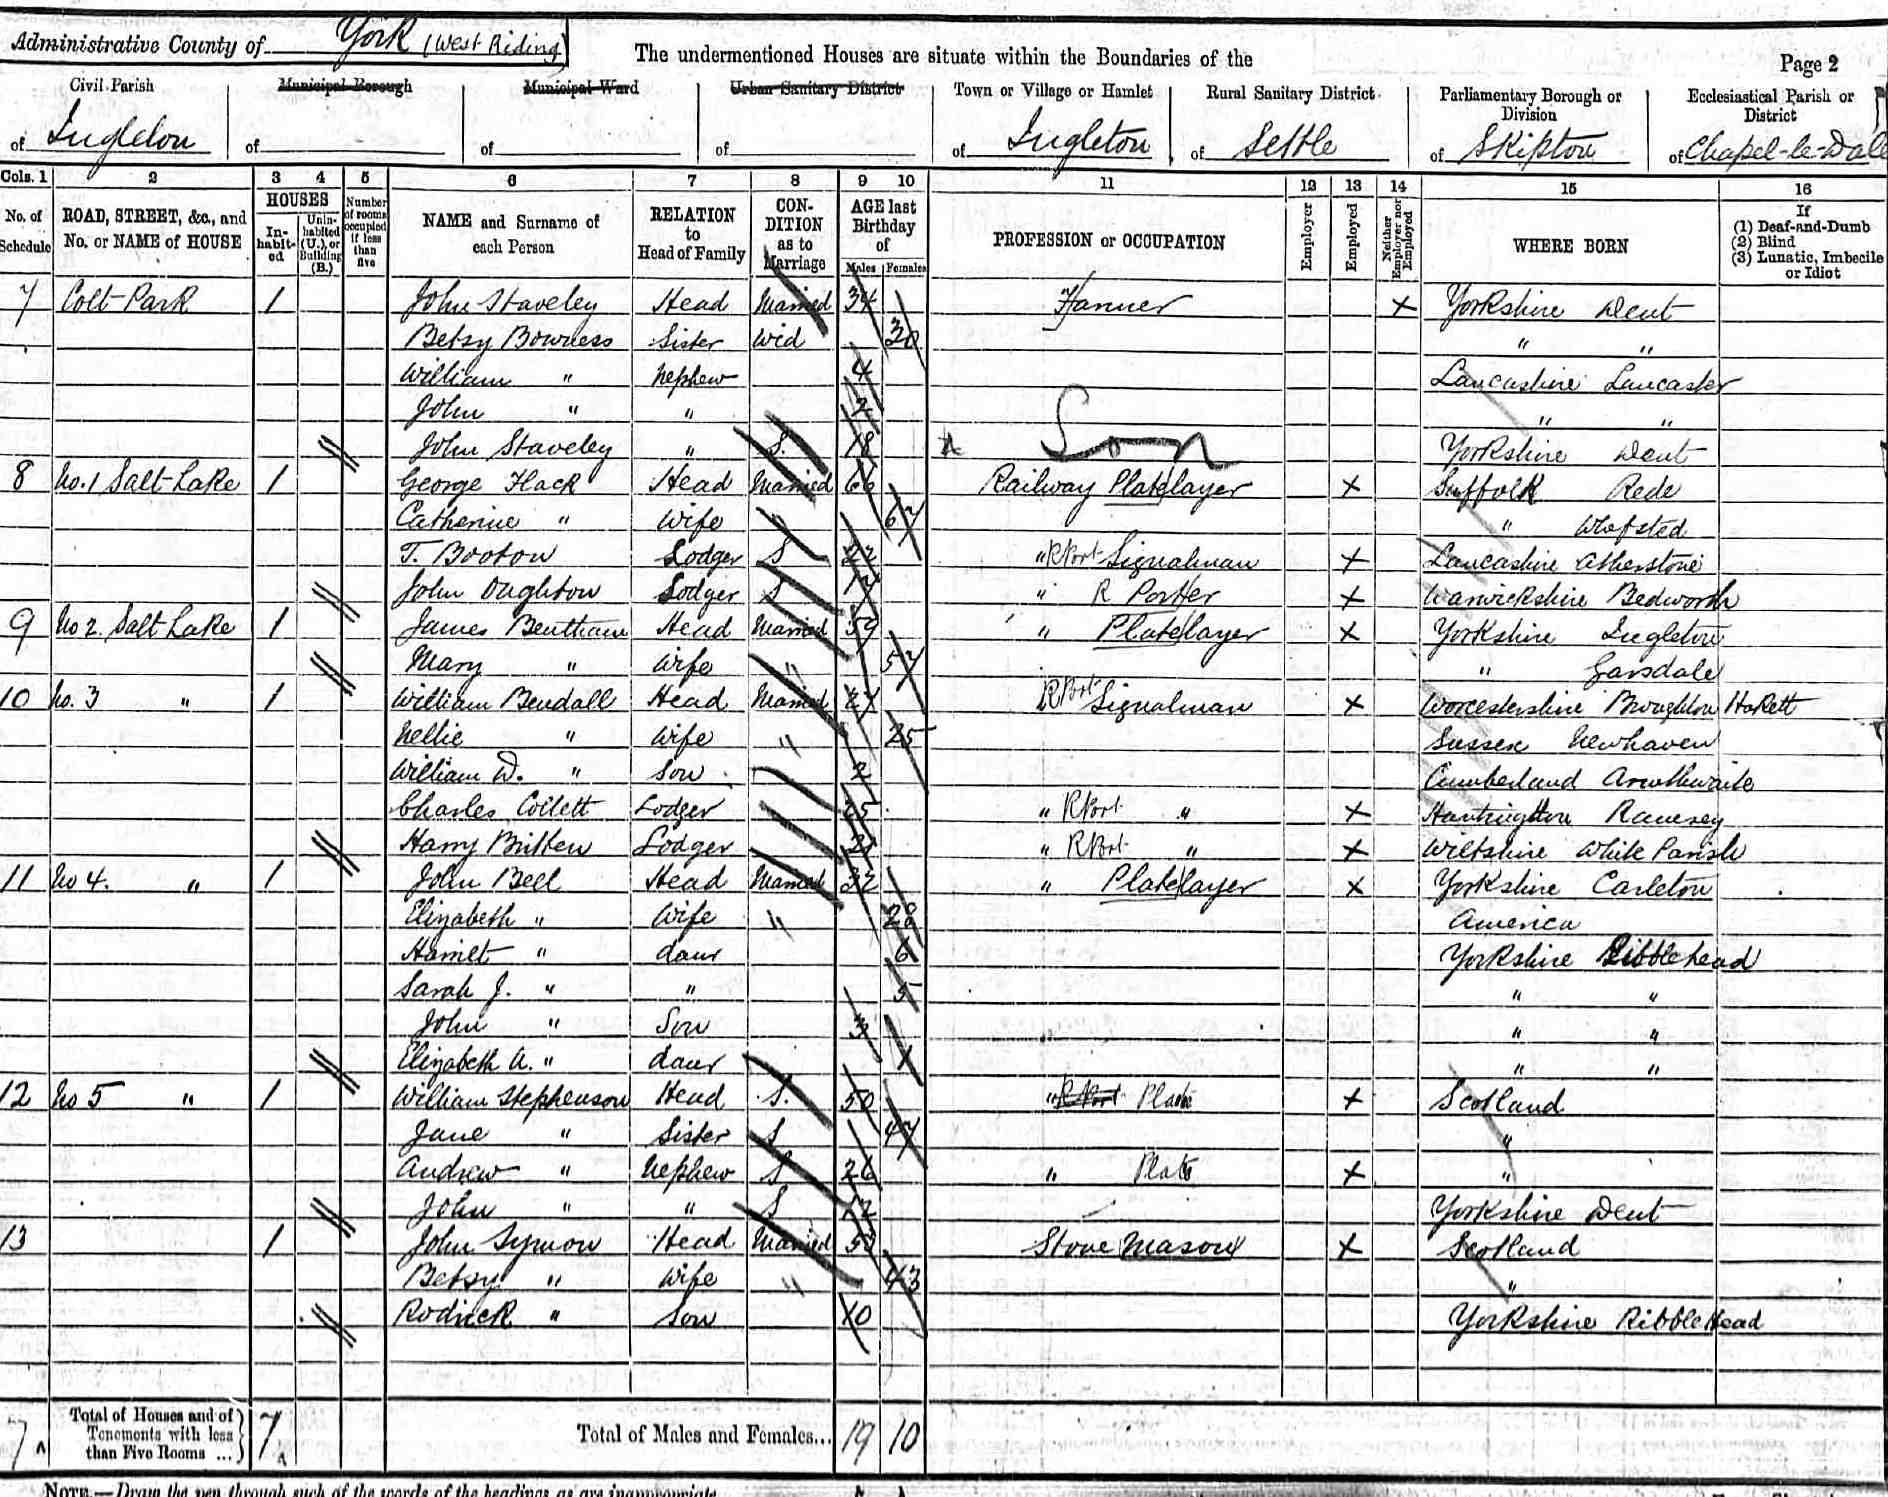 Administrative County of York (West Riding)
The undermentioned Houses are situate within the Boundaries of the
Page 2
Civil Parish Municipal Borough Municipal Ward Urban Sanitary District Town or Village or Hamlet Rural Sanitary District Parliamentary Borough or Division Ecclesiastical Parish or District
of Ingleton of of of of Ingleton of Settle of Skipton of Chapel-le-Dale
Cols. 1 2 3 4 5 6 7 8 9 10 11 12 13 14 15 16
No. of Schedule ROAD, STREET, &c., and No. or NAME of HOUSE HOUSES Inhabited Uninhabited (U.), or Building (B.) Number of rooms occupied if less than five NAME and Surname of each Person RELATION to Head of Family CONDITION as to Marriage AGE last Birthday of Males Females PROFESSION or OCCUPATION Employer Employed Neither Employer nor Employed WHERE BORN If (1) Deaf-and-Dumb (2) Blind (3) Lunatic, Imbecile or Idiot
7 Colt Park 1 John Staveley Head Married 34 Farmer X Yorkshire Dent
Betsy Bowness Sister Wid 30 " "
William " Nephew 4 Lancashire Lancaster
John " " 2 " "
John Staveley " S. 18 Son Yorkshire Dent
8 No. 1 Salt Lake 1 George Flack Head Married 66 Railway Platelayer X Suffolk Rede
Catherine " Wife " 67 "
T. Booton Lodger S 22 " R Port Signalman X Lancashire Atherstone
John Oughton Lodger S 17 " R Porter X Warwickshire Bedworth
9 No 2. Salt Lake 1 James Bentham Head Married 59 " Platelayer X Yorkshire Ingleton
Mary " Wife " 57 " Garsdale
10 No. 3 " 1 William Bendall Head Married 27 R Port Signalman X Worcestershire Broughton Hackett
Nellie " Wife " 25 Sussex Newhaven
William W. " Son 2 Cumberland Armathwaite
Charles Collett Lodger 25 " R Port " X Huntingdon Ramsey
Harry Britten Lodger 21 " R Port " X Wiltshire White Parish
11 No 4. " 1 John Bell Head Married 32 " Platelayer X Yorkshire Carleton
Elizabeth " Wife " 28 America
Harriet " daur 6 Yorkshire Ribblehead
Sarah J. " " 5 " "
John " Son 3 " "
Elizabeth A. " daur 1 " "
12 No 5 " 1 William Stephenson Head S. 50 " R Port Plate X Scotland
Jane " Sister S 47 "
Andrew " Nephew S 26 " Plate X "
John " " S 12 Yorkshire Dent
13 1 John Symon Head Married 53 Stone Mason X Scotland
Betsy " Wife " 43 "
Rodrick " Son 10 Yorkshire Ribble Head
7 Total of Houses and of Tenements with less than Five Rooms ... 7 Total of Males and Females... 19 10
NOTE.—Draw the pen through such of the words of the headings as are inappropriate.